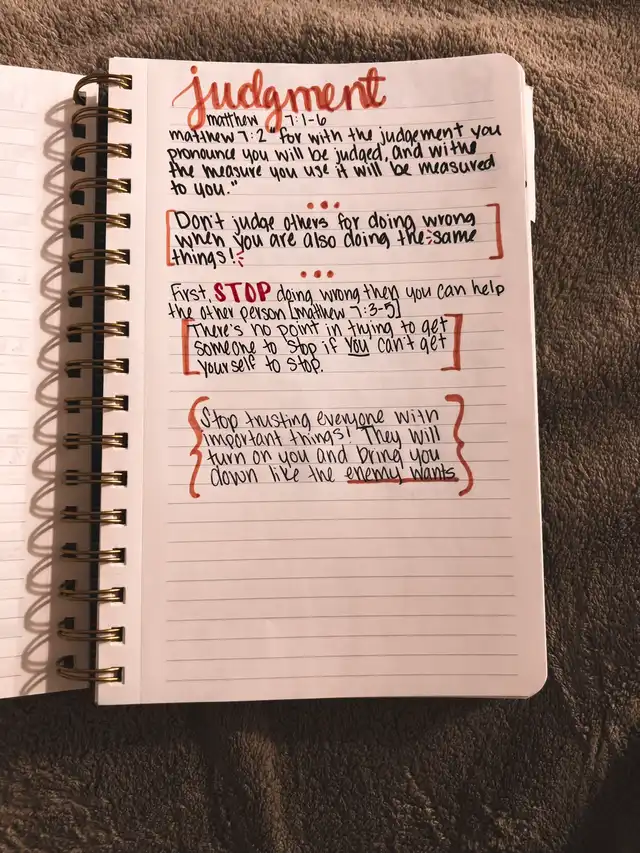 judgment
matthew 7:1-6
matthew 7:2 "for with the judgement you
pronounce you will be judged, and with
the measure you use it will be measured
to you."
Don't judge others for doing wrong
when you are also doing the same
things!
First, STOP doing wrong then you can help
the other person [matthew 7:3-5]
There's no point in trying to get
someone to stop if you can't get
yourself to stop.
Stop trusting everyone with
important things! They will
turn on you and bring you
down like the enemy wants